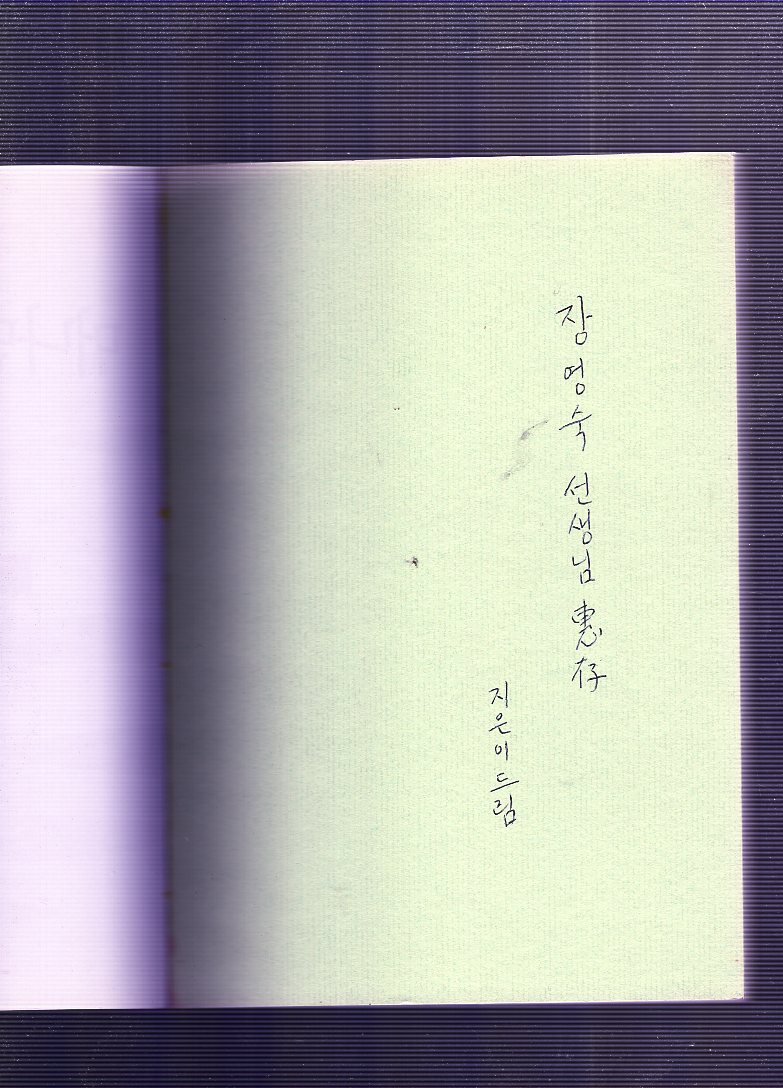 장영숙 선생님 惠存
지은이 드림